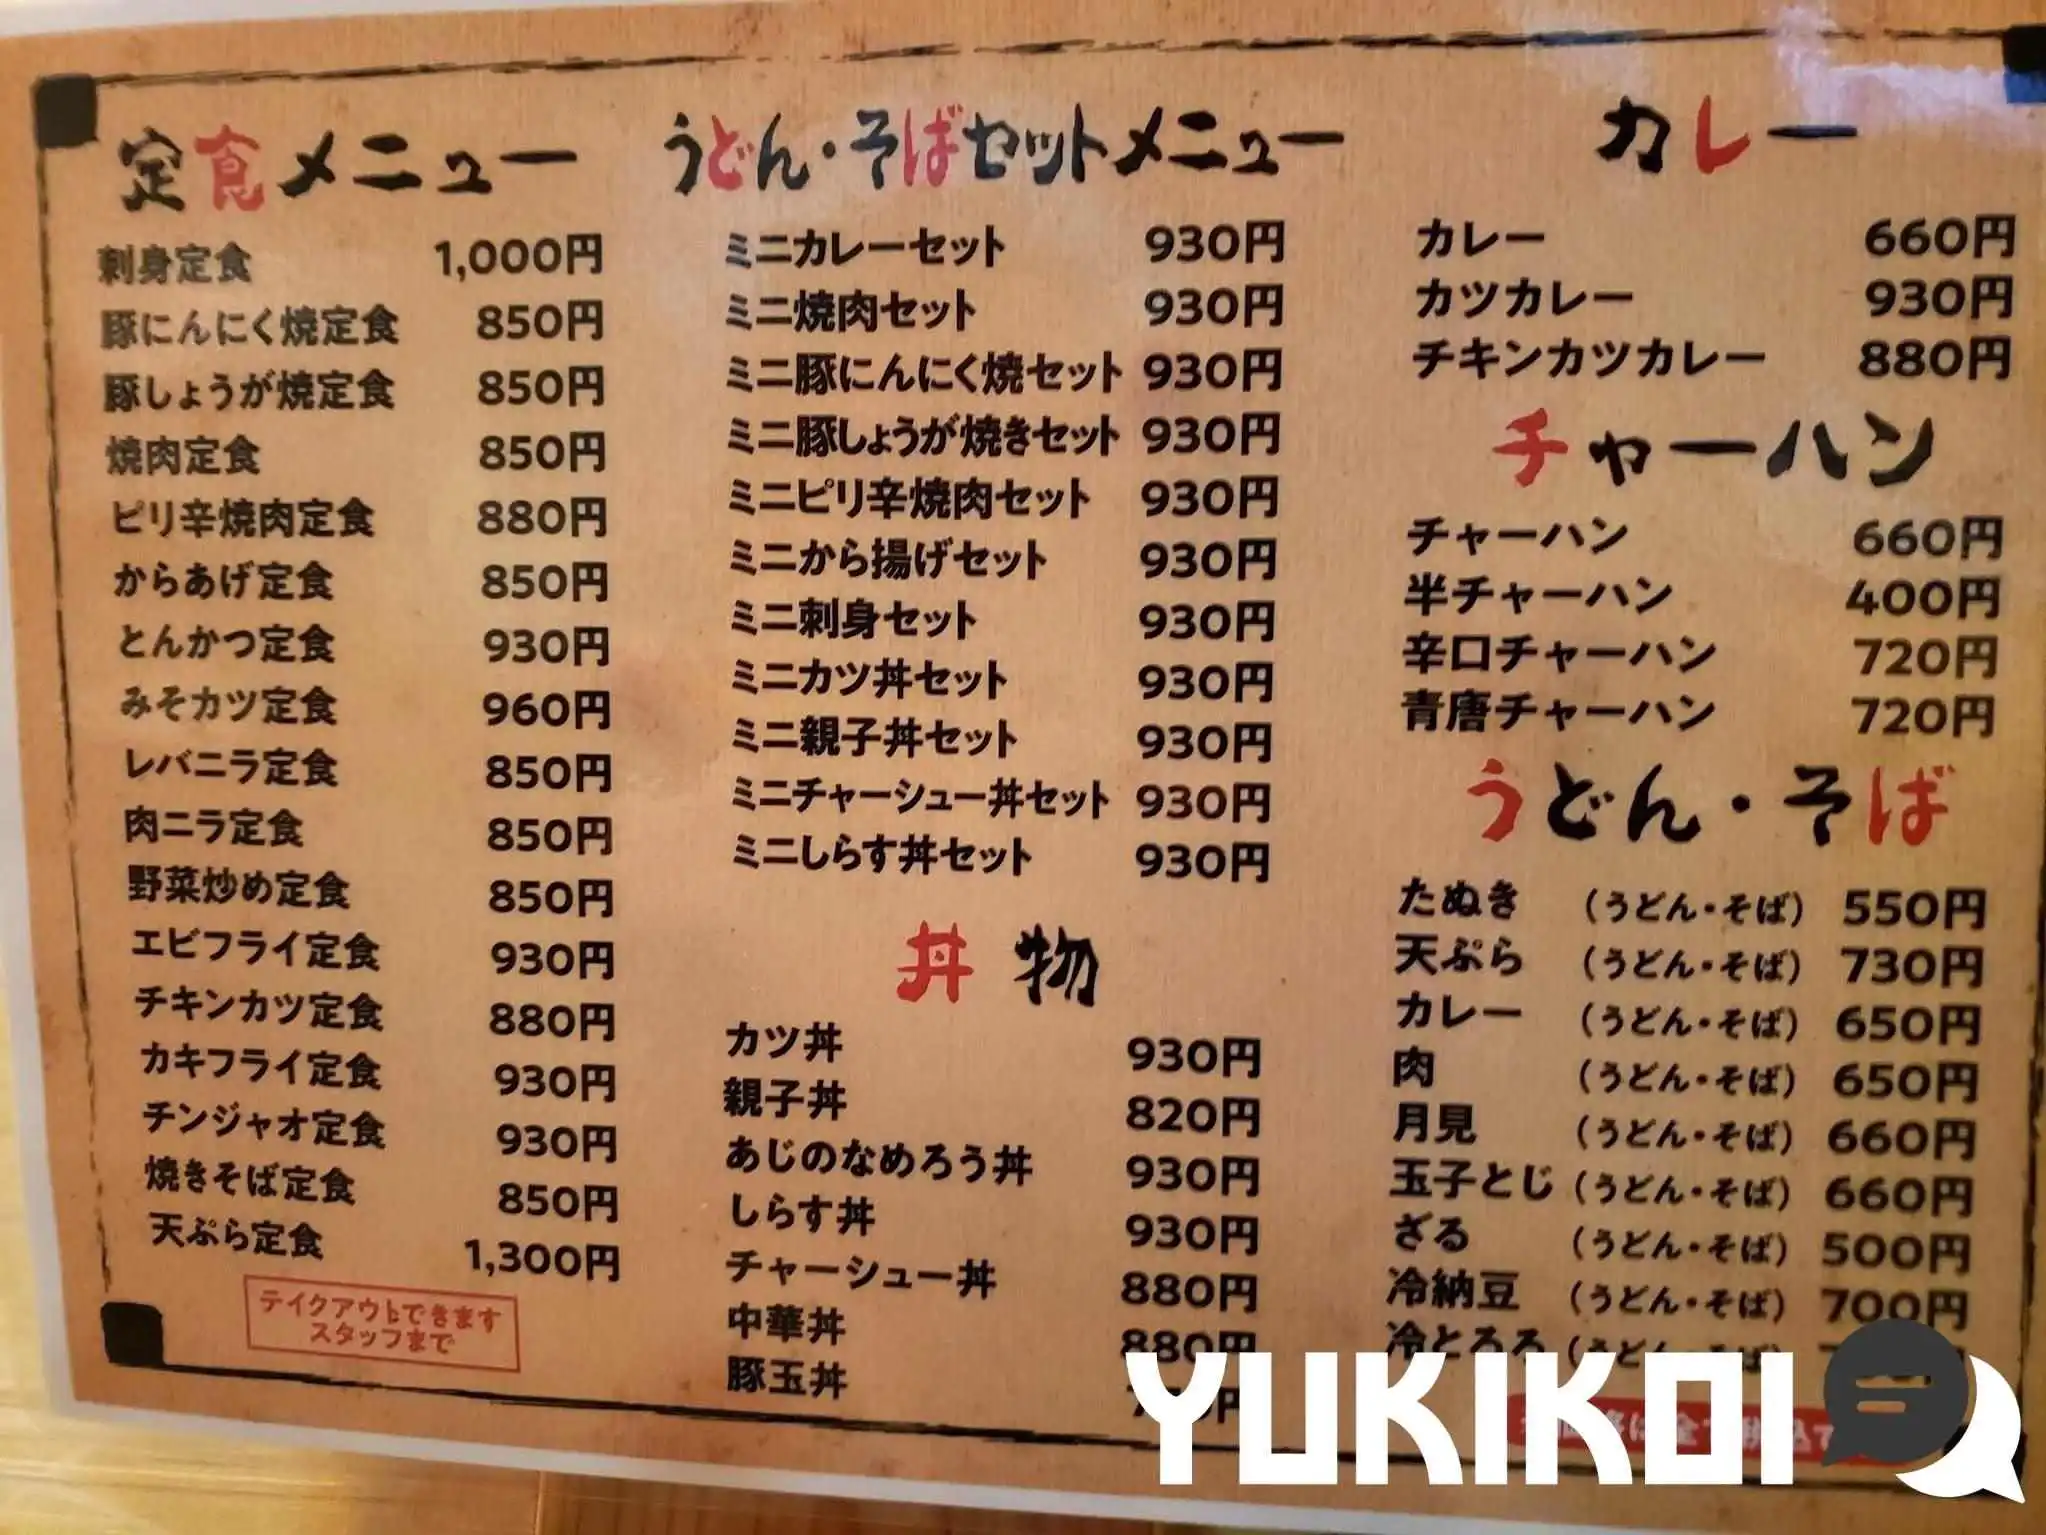 定食メニュー
刺身定食 1,000円
豚にんにく焼定食 850円
豚しょうが焼定食 850円
焼肉定食 850円
ピリ辛焼肉定食 880円
からあげ定食 850円
とんかつ定食 930円
みそカツ定食 960円
レバニラ定食 850円
肉ニラ定食 850円
野菜炒め定食 850円
エビフライ定食 930円
チキンカツ定食 880円
カキフライ定食 930円
チンジャオ定食 930円
焼きそば定食 850円
天ぷら定食 1,300円
テイクアウトできます
スタッフまで
うどん・そばセットメニュー
ミニカレーセット 930円
ミニ焼肉セット 930円
ミニ豚にんにく焼セット 930円
ミニ豚しょうが焼きセット 930円
ミニピリ辛焼肉セット 930円
ミニから揚げセット 930円
ミニ刺身セット 930円
ミニカツ丼セット 930円
ミニ親子丼セット 930円
ミニチャーシュー丼セット 930円
ミニしらす丼セット 930円
丼物
カツ丼 930円
親子丼 820円
あじのなめろう丼 930円
しらす丼 930円
チャーシュー丼 880円
中華丼 880円
豚玉丼
カレー
カレー 660円
カツカレー 930円
チキンカツカレー 880円
チャーハン
チャーハン 660円
半チャーハン 400円
辛口チャーハン 720円
青唐チャーハン 720円
うどん・そば
たぬき (うどん・そば) 550円
天ぷら (うどん・そば) 730円
カレー (うどん・そば) 650円
肉 (うどん・そば) 650円
月見 (うどん・そば) 660円
玉子とじ (うどん・そば) 660円
ざる (うどん・そば) 500円
冷納豆 (うどん・そば) 700円
冷とろろ (うどん・そば)
YUKIKOI